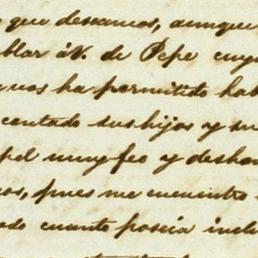 que deseamos, aunque
blar á V. de Pepe cuy
nos ha permitido hab
contado sus hijos y su
pel muy feo y desho
os, pues me encuentro
do cuanto poseía incl